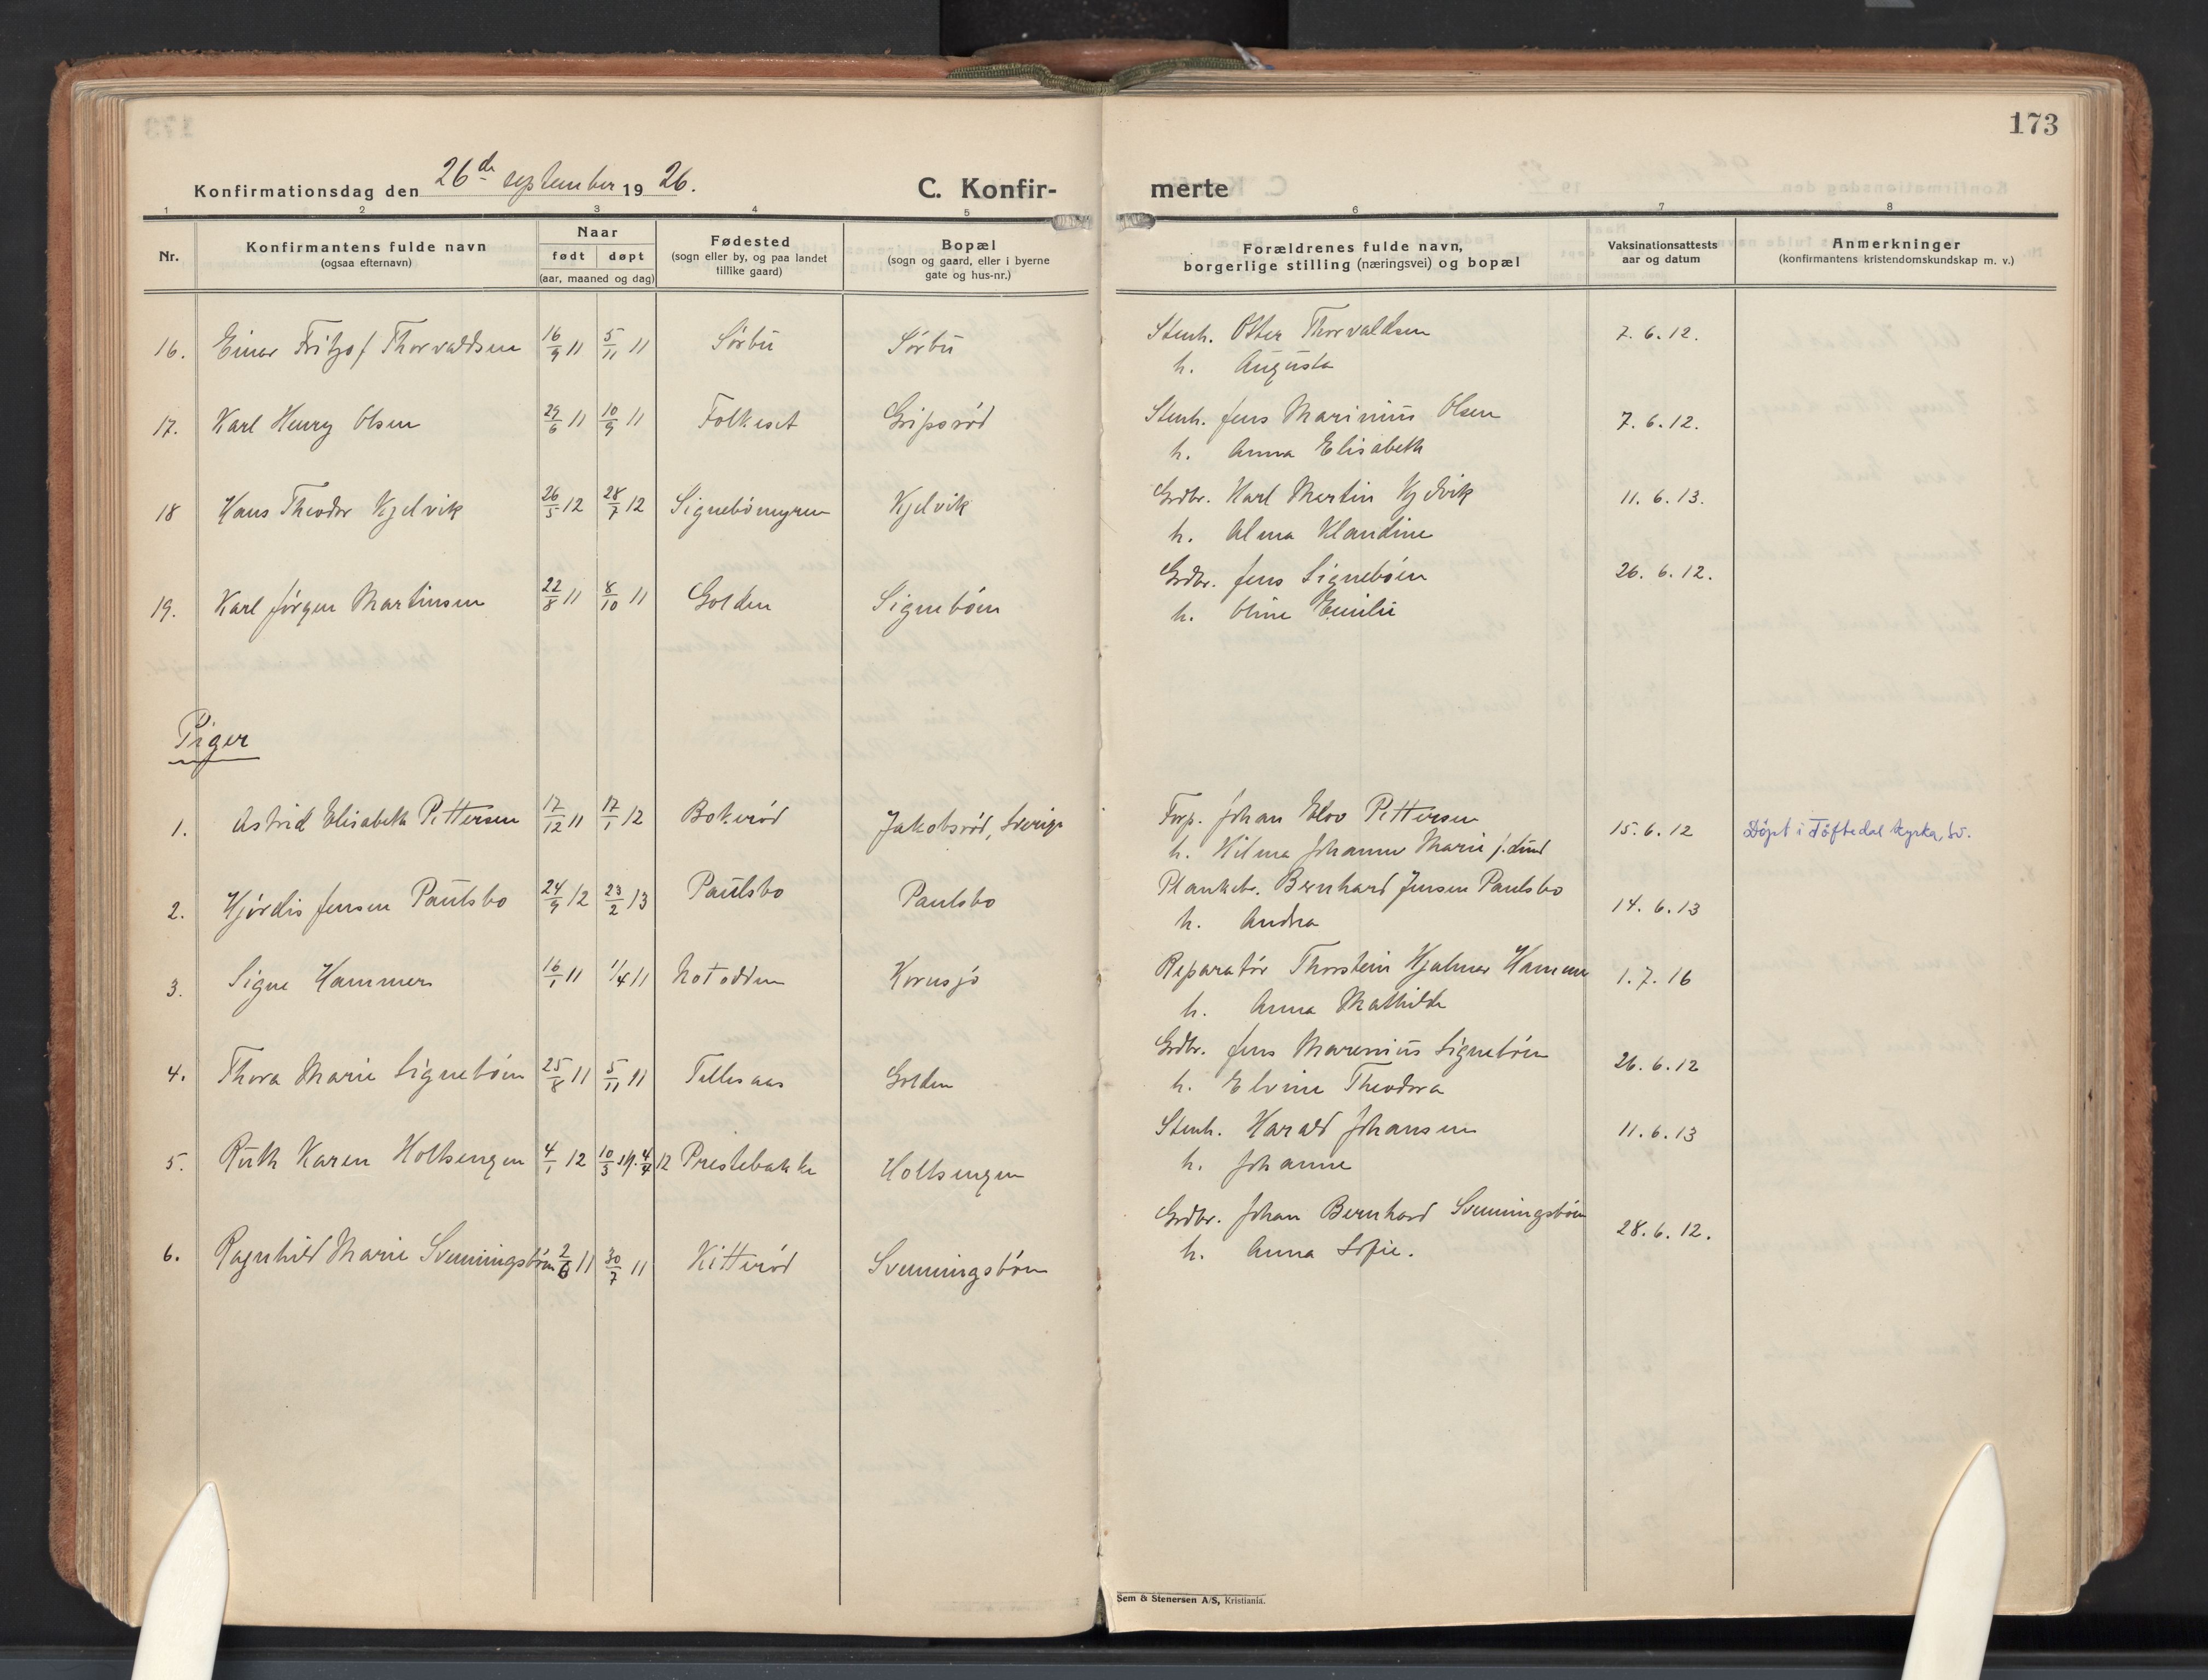 173
Konfirmationsdag den 26de september 1926.
C. Konfir-
merte
1 2 3 4 5 6 7 8
Nr.
Konfirmantens fulde navn
(ogsaa efternavn)
Naar
født døpt
(aar, maaned og dag)
Fødested
(sogn eller by, og paa landet
tillike gaard)
Bopæl
(sogn og gaard, eller i byerne
gate og hus-nr.)
Forældrenes fulde navn,
borgerlige stilling (næringsvei) og bopæl
Vaksinationsattests
aar og datum
Anmerkninger
(konfirmantens kristendomskundskap m. v.)
16. Einar Fritjof Thorvaldsen 16/9 11 5/11 11 Sørbü Sørbü Stenh. Otter Thorvaldsen 7.6.12.
h. Augusta
17. Karl Henry Olsen 29/6 11 10/9 11 Folkeset Gripsrød Stenh. Jens Marinius Olsen 7.6.12.
h. Anna Elisabeth
18 Hans Theodor Kjelvik 26/5 12 28/7 12 Signebömyren Kjelvik Grdbr. Karl Martin Kjelvik 11.6.13.
h. Alma Klaudine
19. Karl Jørgen Martinsen 22/8 11 8/10 11 Golden Signebøen Grdbr. Jens Signebøen 26.6.12.
h. Oline Emilie
Piger
1. Astrid Elisabeth Pettersen 17/12 11 17/1 12 Bokerød Jakobsrød, Sverige Forp. Johan Elov Pettersen 15.6.12 Döpt i Töftedal kyrka, Sv.
h. Hilma Johanne Marie f. Lund
2. Hjørdis Jensen Paulsbo 24/9 12 23/2 13 Paulsbo Paulsbo Plankebr. Bernhard Jensen Paulsbo 14.6.13
h. Andrea
3. Signe Hammer 16/1 11 1/4 11 Notodden Kornsjø Reparatør Thorstein Hjalmar Hammer 1.7.16
h. Anna Mathilde
4. Thora Marie Signebøen 25/8 11 5/11 11 Tellesaas Golden Grdbr. Jens Marenius Signebøen 26.6.12
h. Elvine Theodora
5. Ruth Karen Holtsengen 4/1 12 10/3 4/4 12 Prestebakke Holtsengen Stenh. Harald Johansen 11.6.13
h. Johanne
6. Ragnhild Marie Svenningsbøen 2/6 11 30/7 11 Kitterød Svenningsbøen Grdbr. Johan Bernhard Svenningsbøen 28.6.12.
h. Anna Sofie.
Sem & Stenersen A/S, Kristiania.